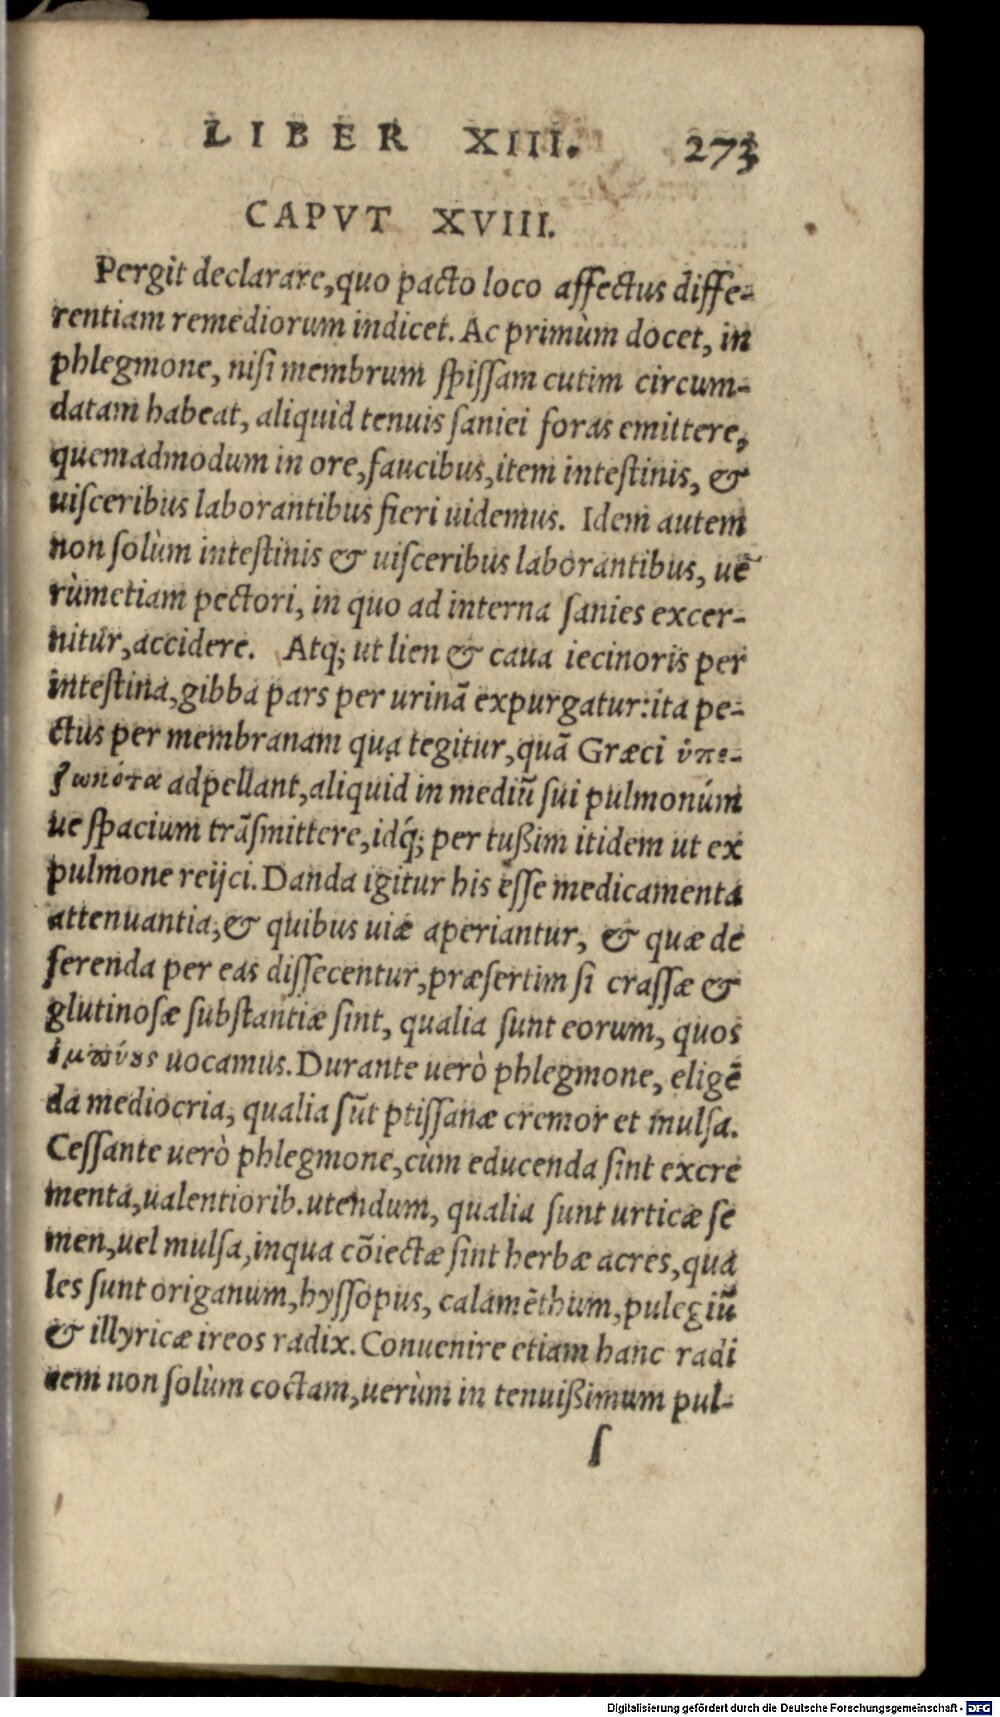 LIBER XIII. 273
CAPVT XVIII.
Pergit declarare, quo pacto loco affectus diffe-
rentiam remediorum indicet. Ac primùm docet, in
phlegmone, nisi membrum spissam cutim circum-
datam habeat, aliquid tenuis saniei foras emittere,
quemadmodum in ore, faucibus, item intestinis, &
uisceribus laborantibus fieri uidemus. Idem autem
non solùm intestinis & uisceribus laborantibus, ue᷃
rùmetiam pectori, in quo ad interna sanies excer-
nitur, accidere. Atq; ut lien & caua iecinoris per
intestina, gibba pars per urinã expurgatur: ita pe-
ctus per membranam qua tegitur, quã Græci ὑπε-
ζωκότα adpellant, aliquid in mediũ sui pulmonúm
ue spacium trãsmittere, idq́; per tußim itidem ut ex
pulmone reijci. Danda igitur his esse medicamenta
attenuantia, & quibus uiæ aperiantur, & quæ de
ferenda per eas dissecentur, præsertim si crassæ &
glutinosæ substantiæ sint, qualia sunt eorum, quos
ἐμπύους uocamus. Durante uerò phlegmone, eligẽ
da mediocria, qualia sũt ptissanæ cremor et mulsa.
Cessante uerò phlegmone, cùm educenda sint excre
menta, ualentiorib. utendum, qualia sunt urticæ se
men, uel mulsa, inqua cõiectæ sint herbæ acres, qua
les sunt origanum, hyssopus, calamẽthum, pulegiũ
& illyricæ ireos radix. Conuenire etiam hanc radi
cem non solùm coctam, uerùm in tenuißimum pul-
ſ
Digitalisierung gefördert durch die Deutsche Forschungsgemeinschaft - DFG